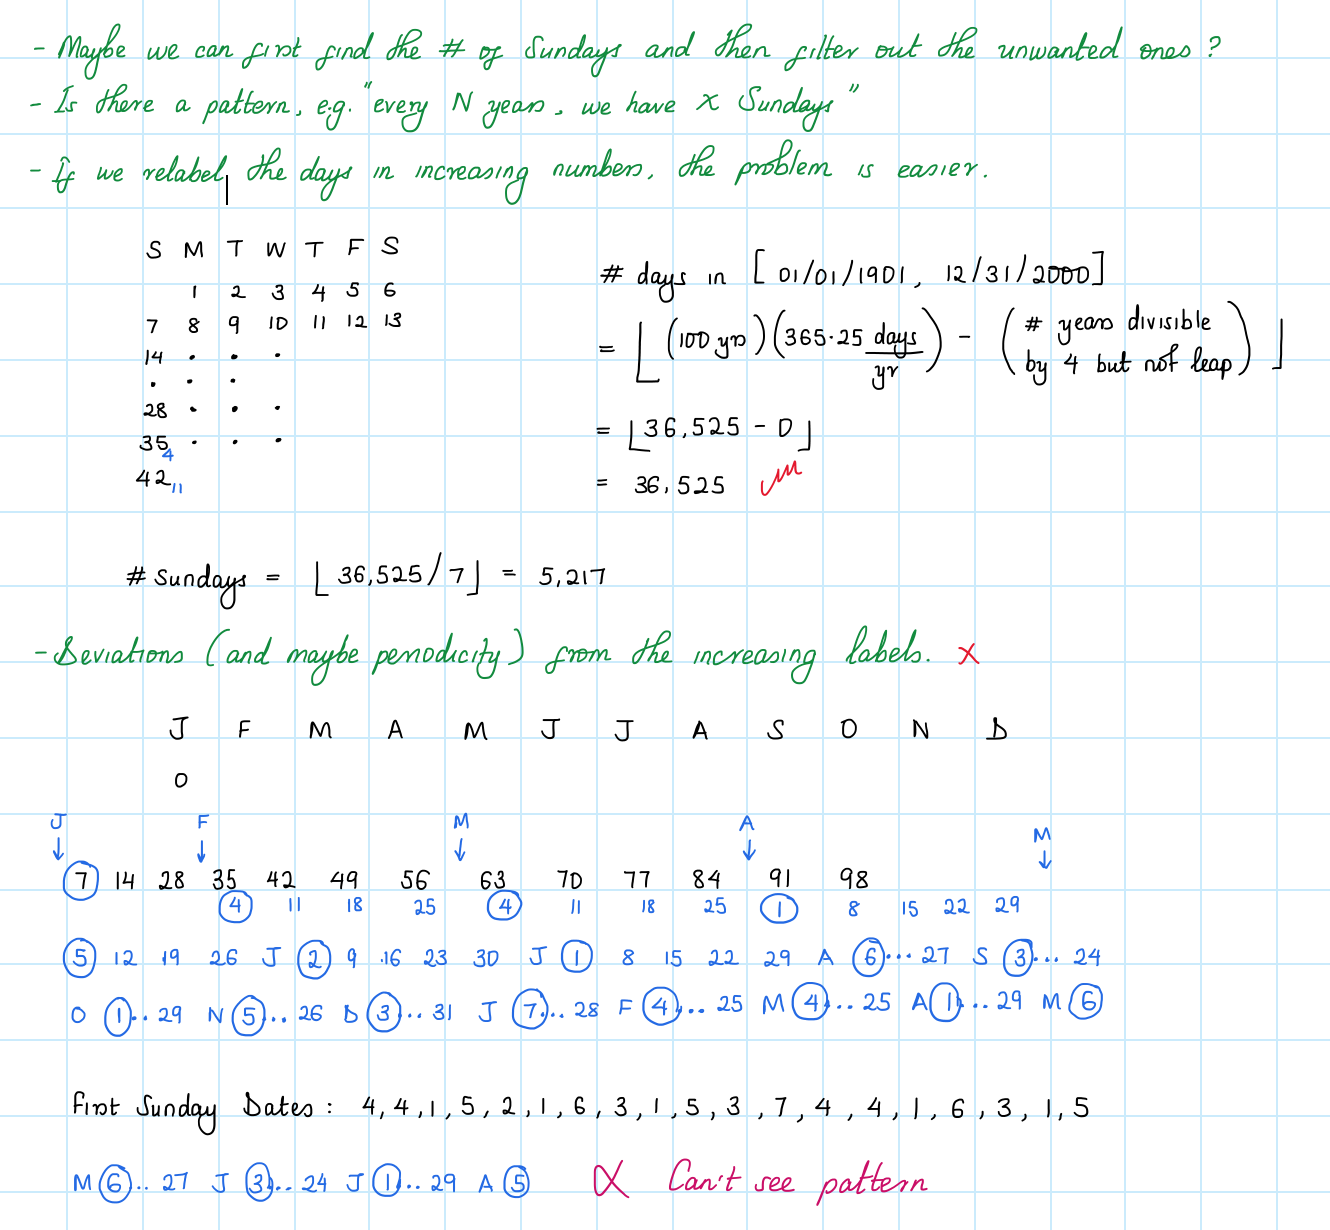 - Maybe we can first find the # of Sundays and then filter out the unwanted ones ?
- Is there a pattern, e.g. "every N years, we have x Sundays"
- If we relabel the days in increasing numbers, the problem is easier.
S M T W T F S
1 2 3 4 5 6
7 8 9 10 11 12 13
14 . . .
. . .
28 . . .
35 . . .
4
42 11
# days in [ 01/01/1901, 12/31/2000]
= ⌊ (100 yrs)(365.25 days/yr) - (# years divisible by 4 but not leap) ⌋
= ⌊36,525 - 0⌋
= 36,525
# Sundays = ⌊ 36,525/7⌋ = 5,217
- Deviations (and maybe periodicity) from the increasing labels. x
J F M A M J J A S O N D
0
J F M A M
7 14 28 35 42 49 56 63 70 77 84 91 98
4 11 18 25 4 11 18 25 1 8 15 22 29
5 12 19 26 J 2 9 16 23 30 J 1 8 15 22 29 A 6... 27 S 3... 24
O 1.. 29 N 5... 26 D 3... 31 J 7... 28 F 4... 25 M 4... 25 A 1... 29 M 6
First Sunday Dates : 4, 4, 1, 5, 2, 1, 6, 3, 1, 5, 3, 7, 4, 4, 1, 6, 3, 1, 5
M 6... 27 J 3... 24 J 1... 29 A 5 Can't see pattern